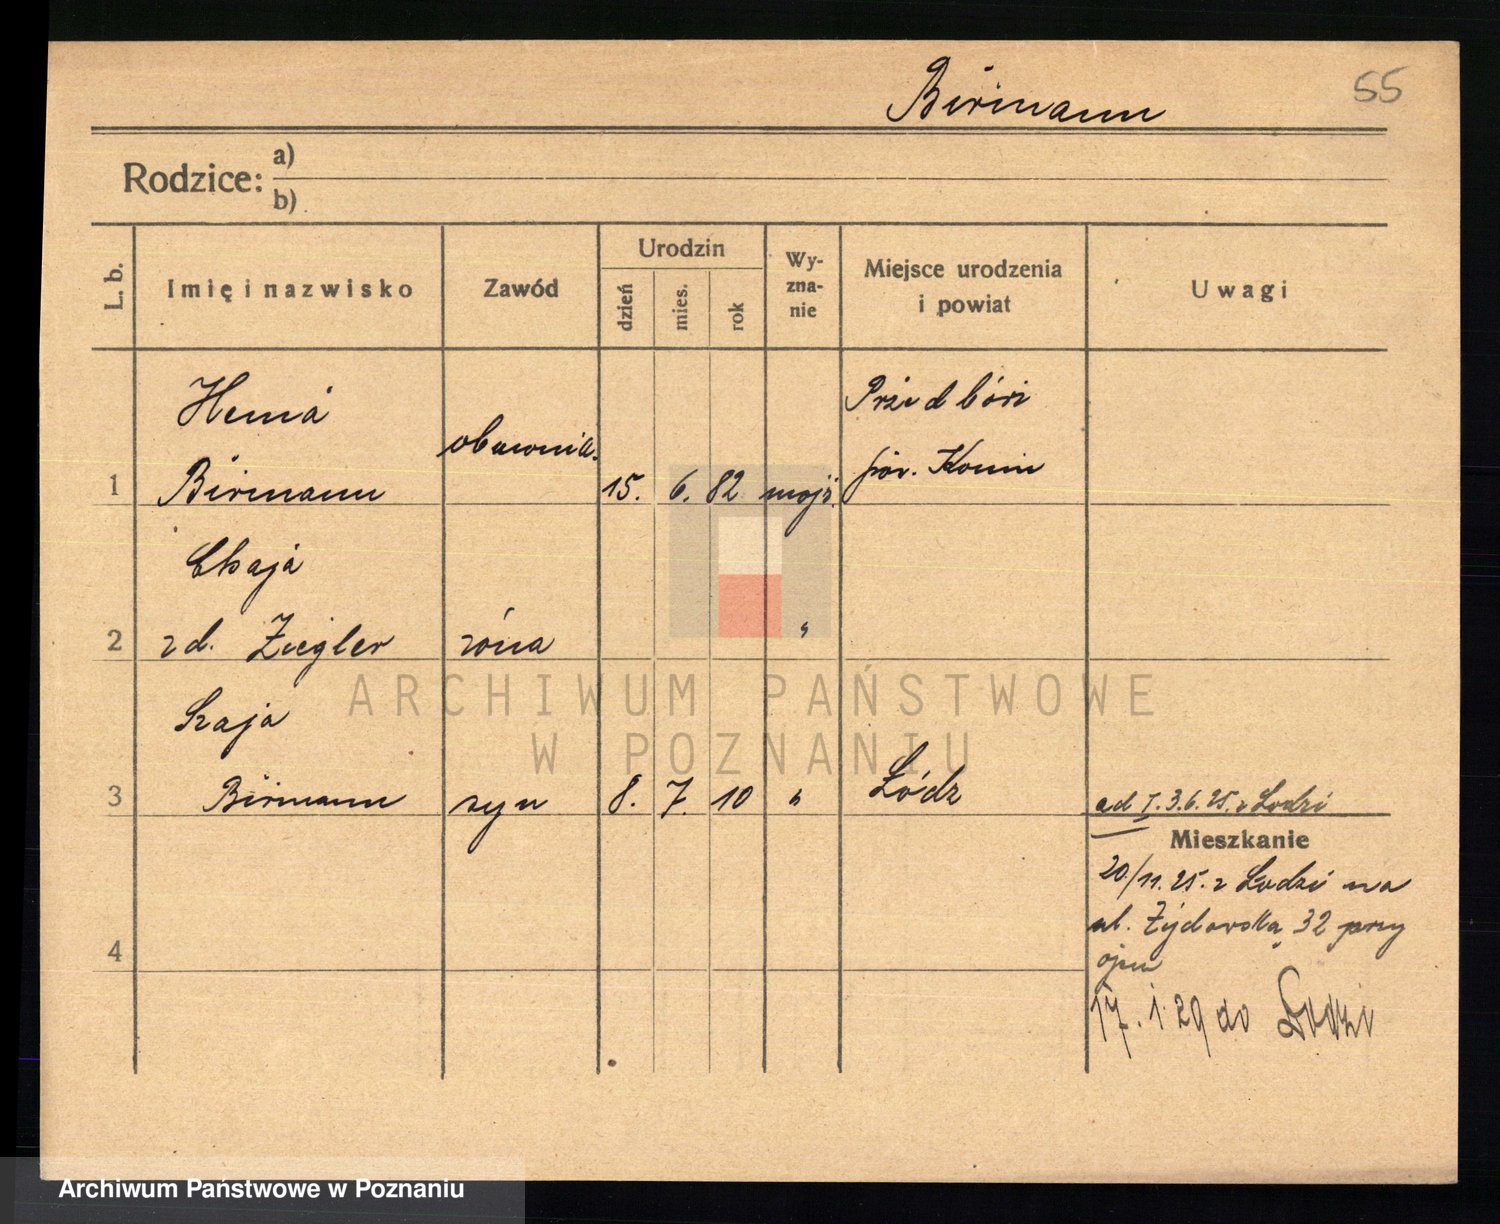 Birmann
55
Rodzice: a)
b)
L. b.
Imię i nazwisko
Zawód
Urodzin
dzień
mies.
rok
Wy-
zna-
nie
Miejsce urodzenia
i powiat
Uwagi
Przedbórz
pow. Konin
1
Birmann
15. 6. 82 mojż.
Chaja
2
zd. Ziegler
żona
"
Szaja
3
Birmann
syn
8. 7. 10
"
Łódz
ad I. 3.6.25. z Łodzi
Mieszkanie
20/11. 25. z Łodzi na
ul. Żydowską 32 przy
ojcu
4
17. 1. 29 do Łodzi
ARCHIWUM PAŃSTWOWE
W POZNANIU
Archiwum Państwowe w Poznaniu